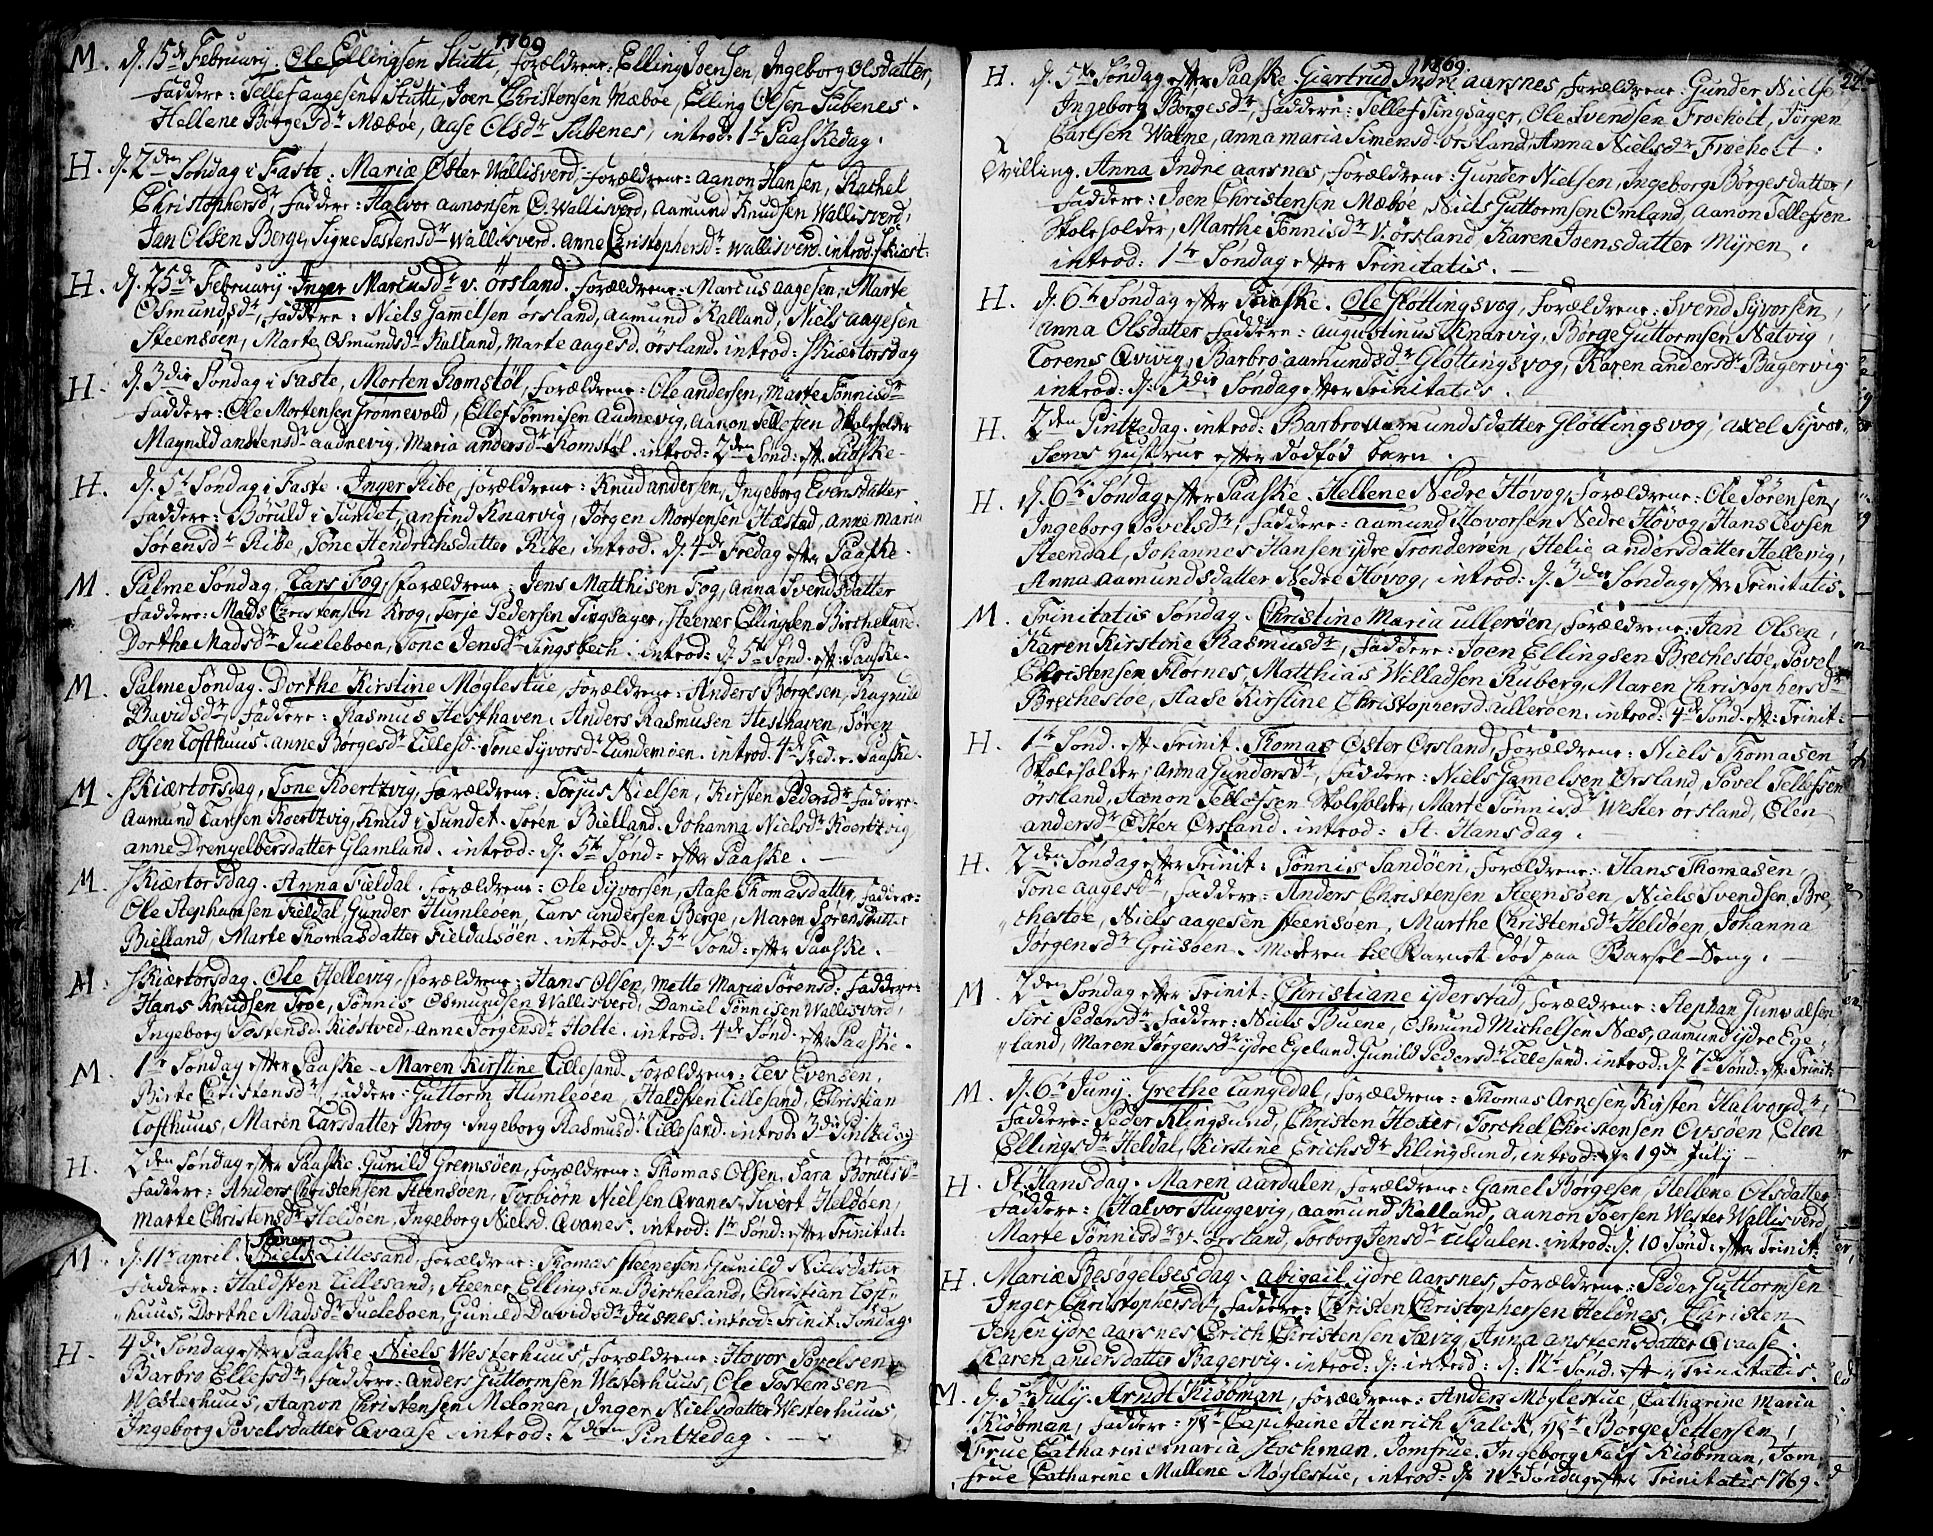 1769
M. d. 15de February. Ole Ellingsen Stutti, forældrene: Elling Joensen, Ingeborg Olsdatter,
Faddere: Tellef Aagesen Stutti, Joen Christensen Mæbøe, Elling Olsen Tubenes.
Hellene Børgesdr Mæbøe, Aase Olsdr Tubenes, introd: 1te Paaskedag.
H. d. 2den Søndag i Faste. Mariæ Øster Wallisverd forældrene: Aanon Hansen, Rachel
Christophersdr, Faddere: Halvor Aanonsen O. Wallisverd, Aamund Knudsen Wallisverd,
Jan Olsen Berge, Signe Tostensdr Wallisverd. Anne Christophersdr Wallisverd. introd:
H. d. 25de February. Inger Marcusdr v. Ørsland. forældrene: Marcus Aagesen, Marte
Osmundsdr, Faddere: Niels Gamelsen Ørsland, Aamund Kalland, Niels Aagesen
Steensøen, Marte Osmundsdr Kalland, Marte Aagesd. Ørsland. introd: Skiertorsdag
H. d. 3die Søndag i Faste, Morten Romstøl, forældrene: Ole Andersen, Marte Tønnisdr
Faddere: Ole Mortensen Grønnevold, Ellef Tønnisen Audnevig, Aanon Tellefsen Skoleholder
Magnild Anstensdr Audnevig, Maria Andersdr Romstøl. introd: 2den Sønd: eft. Paaske.
H. d. 5te Søndag i Faste. Inger Ribe, forældrene: Knud Andersen, Ingeborg Evensdatter
Faddere: Børuld i Sundet, Anfind Knarvig, Jørgen Mortensen Hæstad, Anne Maria
Sørensdr Ribe, Tone Hendrichsdatter Ribe, introd. d. 4de Fredag eftr Paaske.
M. Palme Søndag. Lars Fog, forældrene: Jens Matthisen Fog, Anna Svendsdatter
Faddere: Mads Christensen Krog, Torje Pedersen Tingsager, Steener Ellingsen Birtheland.
Dorthe Madsdr Jueleboen, Tone Jensdr Tingsbech. introd: d. 5te Sønd. eft: Paaske.
M. Palme Søndag. Dorthe Kirstine Møglestue, forældrene: Anders Børgesen, Ragnild
Davidsdr, Faddere: Rasmus Hesthaven. Anders Rasmusen Hesthaven, Søren
Olsen Tofthuus. Anne Børgesdr Lillesd. Tone Syvorsdr Tundemoen. introd. 4de Fred. e. Paaske.
M. Skiærtorsdag. Tone Koertvig, forældrene: Torjus Nielsen, Kirsten Pedersdr Faddere:
Aamund Larsen Koertvig, Knud i Sundet. Søren Bielland. Johanna Nielsdr Koertvig
Anne Drengelbersdatter Glamland. introd: d. 5te Sønd: efter Paaske.
M. Skiærtorsdag. Anna Fieldal. forældrene: Ole Syvorsen, Aase Thomasdatter, Faddere:
Ole Stephansen Fieldal, Gunder Humleøen, Lars Andersen Berge, Maren Sørensdatter
Bielland, Marte Thomasdatter Fieldalsøen. introd: d. 5te Sønd: efter Paaske.
H. Skiærtorsdag. Ole Hellevig, forældrene: Hans Olsen, Mette Maria Sørensd: Faddere:
Hans Knudsen Troe, Tønnis Osmundsen Wallisverd, Daniel Tønnisen Wallisverd,
Ingeborg Tostensd. Kiostved. Anne Jørgensdr Holte. introd: 4de Sønd. eft Paaske.
M. 1te Søndag efter Paaske. Maren Kirstine Lillesand. forældrene: Lev Evensen,
Birte Christensdr, Faddere: Guttorm Humleøen, Haldsten Lillesand, Christian
Tofthuus, Maren Larsdatter Krog. Ingeborg Rasmusd. Lillesand. introd 3die Pintzedag
H. 2den Søndag efter Paaske. Gunild Gremsøen, forældrene: Thomas Olsen, Sara Børulsdr
Faddere: Anders Christensen Steensøen, Torbiørn Nielsen Qvanes, Sivert Heldøen,
Marte Christensdr Heldøen, Ingeborg Nielsd. Qvanes. introd: 1te Sønd: efter Trinitat:
M. d. 11te April. Steener Niels Lillesand, forældrene: Thomas Steenersen, Gunild Nielsdatter
Faddere: Haldsten Lillesand, Steener Ellingsen Bercheland, Christian Toft-
huus. Dorthe Madsdr Jueleboen, Gunild Davidsdr Justnes. introd: Trinit. Søndag.
H. 4de Søndag efter Paaske. Niels Westerhuus, forældrene: Hovor Povelsen
Barbro Ellefsdr, Faddere: Anders Guttormsen Westerhuus, Ole Tostensen
Westerhuus, Aanon Christensen Melanen, Inger Nielsdatter Westerhuus,
Ingeborg Povelsdatter Qvaase. introd: 2den Pintzedag.
1769
H. d. 5te Søndag efter Paaske. Giertrud Indre Aarsnes, forældrene: Gunder Nielse
Ingeborg Børgesdr, Faddere: Tellef Tingsager, Ole Svendsen Froeholt, Jørgen
Carlsen Walne, Anna Maria Simensdr Ørsland, Anna Nielsdr Froeholt.
Tvilling. Anna Indre Aarsnes, forældrene: Gunder Nielsen, Ingeborg Børgesdatter,
Faddere: Joen Christensen Mæbøe, Niels Guttormsen Omland, Aanon Tellefsen
Skoleholder, Marthe Tønnisdr V. Ørsland, Karen Joensdatter Myren.
introd: 1te Søndag efter Trinitatis.
H. d. 6te Søndag efter Paaske. Ole Gløttingsvog, forældrene: Svend Syvorsen,
Anna Olsdatter Faddere: Augustinus Knarvig, Børge Guttormsen Natvig,
Torens Qvivig, Barbro Aamundsdr Gløttingsvog, Karen Andersdr Bagervig
introd: d: 3die Søndag efter Trinitatis.
H. 2den Pintzedag. introd: Barbro Aamundsdatter Gløttingsvog, Axel Syvor-
sens Hustrue efter dødfød barn.
H. d. 6te Søndag efter Paaske. Hellene Nedre Høvog, forældrene: Ole Sørensen,
Ingeborg Povelsdr, Faddere: Aamund Hovorsen Nedre Høvog, Hans Levsen
Steendal, Johannes Hansen ydre Tronderøen, Helie Andersdatter Hellevig,
Anna Aamundsdatter Nedre Høvog, introd: d. 3die Søndag efter Trinitatis.
M. Trinitatis Søndag. Christine Maria Ullerøen, forældrene: Jan Olsen,
Karen Kirstine Rasmusdr, Faddere: Joen Ellingsen Brechestøe, Povel
Christensen Flørnes, Matthias Willadsen Kuberg, Maren Christophersdr
Brechestøe, Hase Kirstine Christophersd. Ullerøen. introd: 4de Sønd. eft: Trinit:
H. 1te Sønd. eft. Trinit. Thomas Øster Ørsland, forældrene: Niels Thomasen
Skoleholder, Anna Gundersdr, Faddere: Niels Gamelsen Ørsland, Povel Tellefsen
Ørsland, Aanon Tellefsen Skoleholder, Marte Tønnisdr Wester Ørsland, Elen
Andersdr Øster Ørsland. introd: St. Hansdag.
H. 2den Søndag efter Trinit: Tønnis Sandøen, forældrene: Hans Thomasen,
Tone Aagesdr, Faddere: Anders Christensen Steensøen, Niels Svendsen, Bre-
chestøe, Niels Aagesen Steensøen, Marthe Christensdr Heldøen, Johanna
Jørgensdr Grusøen. Moderen til Barnet død paa Barsel-Seng.
M. 2den Søndag efter Trinit: Christiane Yderstad, forældrene: Stephan Gunvalsen
Siri Pedersdr Faddere: Niels Buene, Osmund Michelsen Næs, Aamund ydre Ege-
land, Maren Jørgensdr ydre Egeland. Gunild Pedersdr Lillesand. introd. d. 7de Sønd. eft. Trinit:
M. d. 6te Juny. Grethe Langedal, forældrene: Thomas Arnesen, Kirsten Halvorsdr,
Faddere: Peder Klingsund, Christen Holter, Torchel Christensen Ovsøen, Elen
Ellingsdr Heldal, Kirstine Erichsdr Klingsund, introd: d. 19de July
H. St. Hansdag. Maren Aardalen, forældrene: Gamel Børgesen, Hellene Olsdatter,
Faddere: Halvor Huggevig, Aamund Kalland, Aanon Joersen Wester Wallisverd,
Marte Tønnisdr v. Ørsland, Torborg Jensdr Uldalen. introd: d. 10 Sønd: efter Trinit:
H. Mariæ Besøgelsesdag. Abigail ydre Aarsnes, forældrene: Peder Guttormsen
Inger Christophersdr, Faddere: Christen Christophersen Heldnes, Christen
Jensen ydre Aarsnes, Erich Christensen Hævig, Anna Ansteensdatter Qvaase.
Karen Andersdatter Bagervig. introd: d: introd: d: 12te Sønd. efter Trinitatis.
M. d. 5te July. Arndt Kiøbman, forældrene: Anders Møglestue, Catharine Maria
Kiøbman, Faddere: Hr Capitaine Henrich Falck, Hr Børge Pettersen,
Frue Catharine Maria Stochman. Jomfrue Ingeborg Feif Kiøbman, Jom-
frue Catharine Mallene Møglestue, introd: d. 11te Søndag efter Trinitatis 1769.